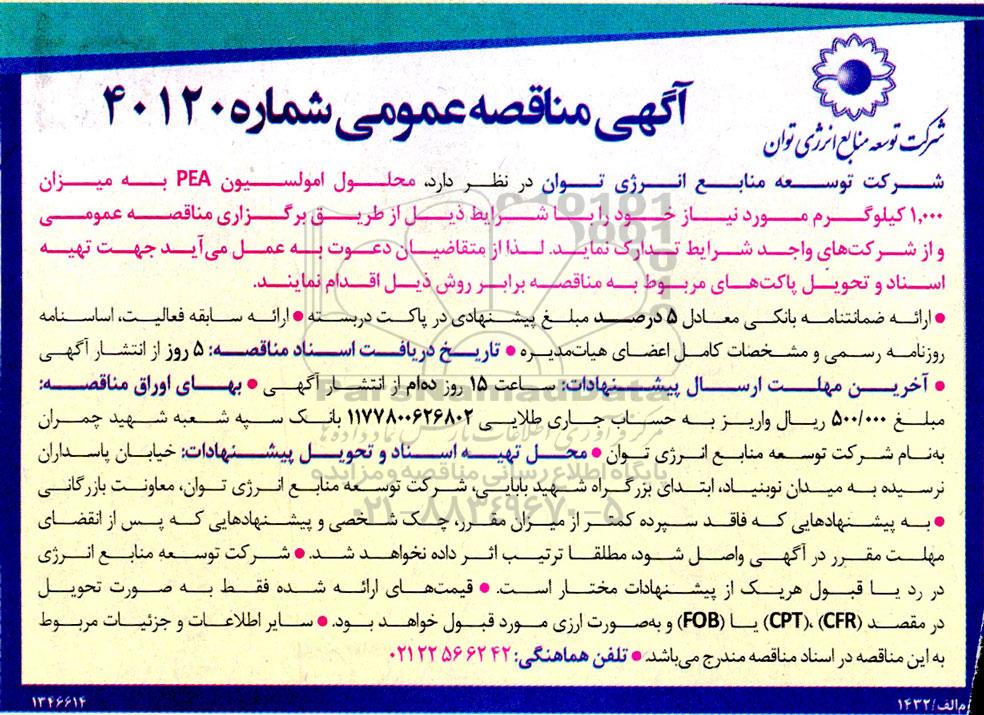 شرکت توسعه منابع انرژی توان
آگهی مناقصه عمومی شماره ۴۰۱۲۰
شرکت توسعه منابع انرژی توان در نظر دارد، محلول امولسیون PEA به میزان
۱,۰۰۰ کیلوگرم مورد نیاز خود را با شرایط ذیل از طریق برگزاری مناقصه عمومی
و از شرکت‌های واجد شرایط تدارک نماید. لذا از متقاضیان دعوت به عمل می‌آید جهت تهیه
اسناد و تحویل پاکت‌های مربوط به مناقصه برابر روش ذیل اقدام نمایند.
● ارائه ضمانتنامه بانکی معادل ۵ درصد مبلغ پیشنهادی در پاکت دربسته ● ارائه سابقه فعالیت، اساسنامه
روزنامه رسمی و مشخصات کامل اعضای هیات‌مدیره ● تاریخ دریافت اسناد مناقصه: ۵ روز از انتشار آگهی
● آخرین مهلت ارسال پیشنهادات: ساعت ۱۵ روز ده‌ام از انتشار آگهی ● بهای اوراق مناقصه:
مبلغ ۵۰۰/۰۰۰ ریال واریز به حساب جاری طلایی ۱۱۷۷۸۰۰۶۲۶۸۰۲ بانک سپه شعبه شهید چمران
به‌نام شرکت توسعه منابع انرژی توان ● محل تهیه اسناد و تحویل پیشنهادات: خیابان پاسداران
نرسیده به میدان نوبنیاد، ابتدای بزرگراه شهید بابایی، شرکت توسعه منابع انرژی توان، معاونت بازرگانی
● به پیشنهادهایی که فاقد سپرده کمتر از میزان مقرر، چک شخصی و پیشنهادهایی که پس از انقضای
مهلت مقرر در آگهی واصل شود، مطلقا ترتیب اثر داده نخواهد شد. ● شرکت توسعه منابع انرژی
در رد یا قبول هریک از پیشنهادات مختار است. ● قیمت‌های ارائه شده فقط به صورت تحویل
در مقصد (CFR) ،(CPT) یا (FOB) و به‌صورت ارزی مورد قبول خواهد بود. ● سایر اطلاعات و جزئیات مربوط
به این مناقصه در اسناد مناقصه مندرج می‌باشد. ● تلفن هماهنگی: ۰۲۱۲۲۵۶۶۲۴۲
ParsNamadData
مرکز فرآوری اطلاعات پارس نماد داده‌ها
پایگاه اطلاع رسانی مناقصه و مزایده
۰۲۱-۸۸۳۴۹۶۷۰-۵
م الف/۱۴۳۲
۱۳۴۶۶۱۴